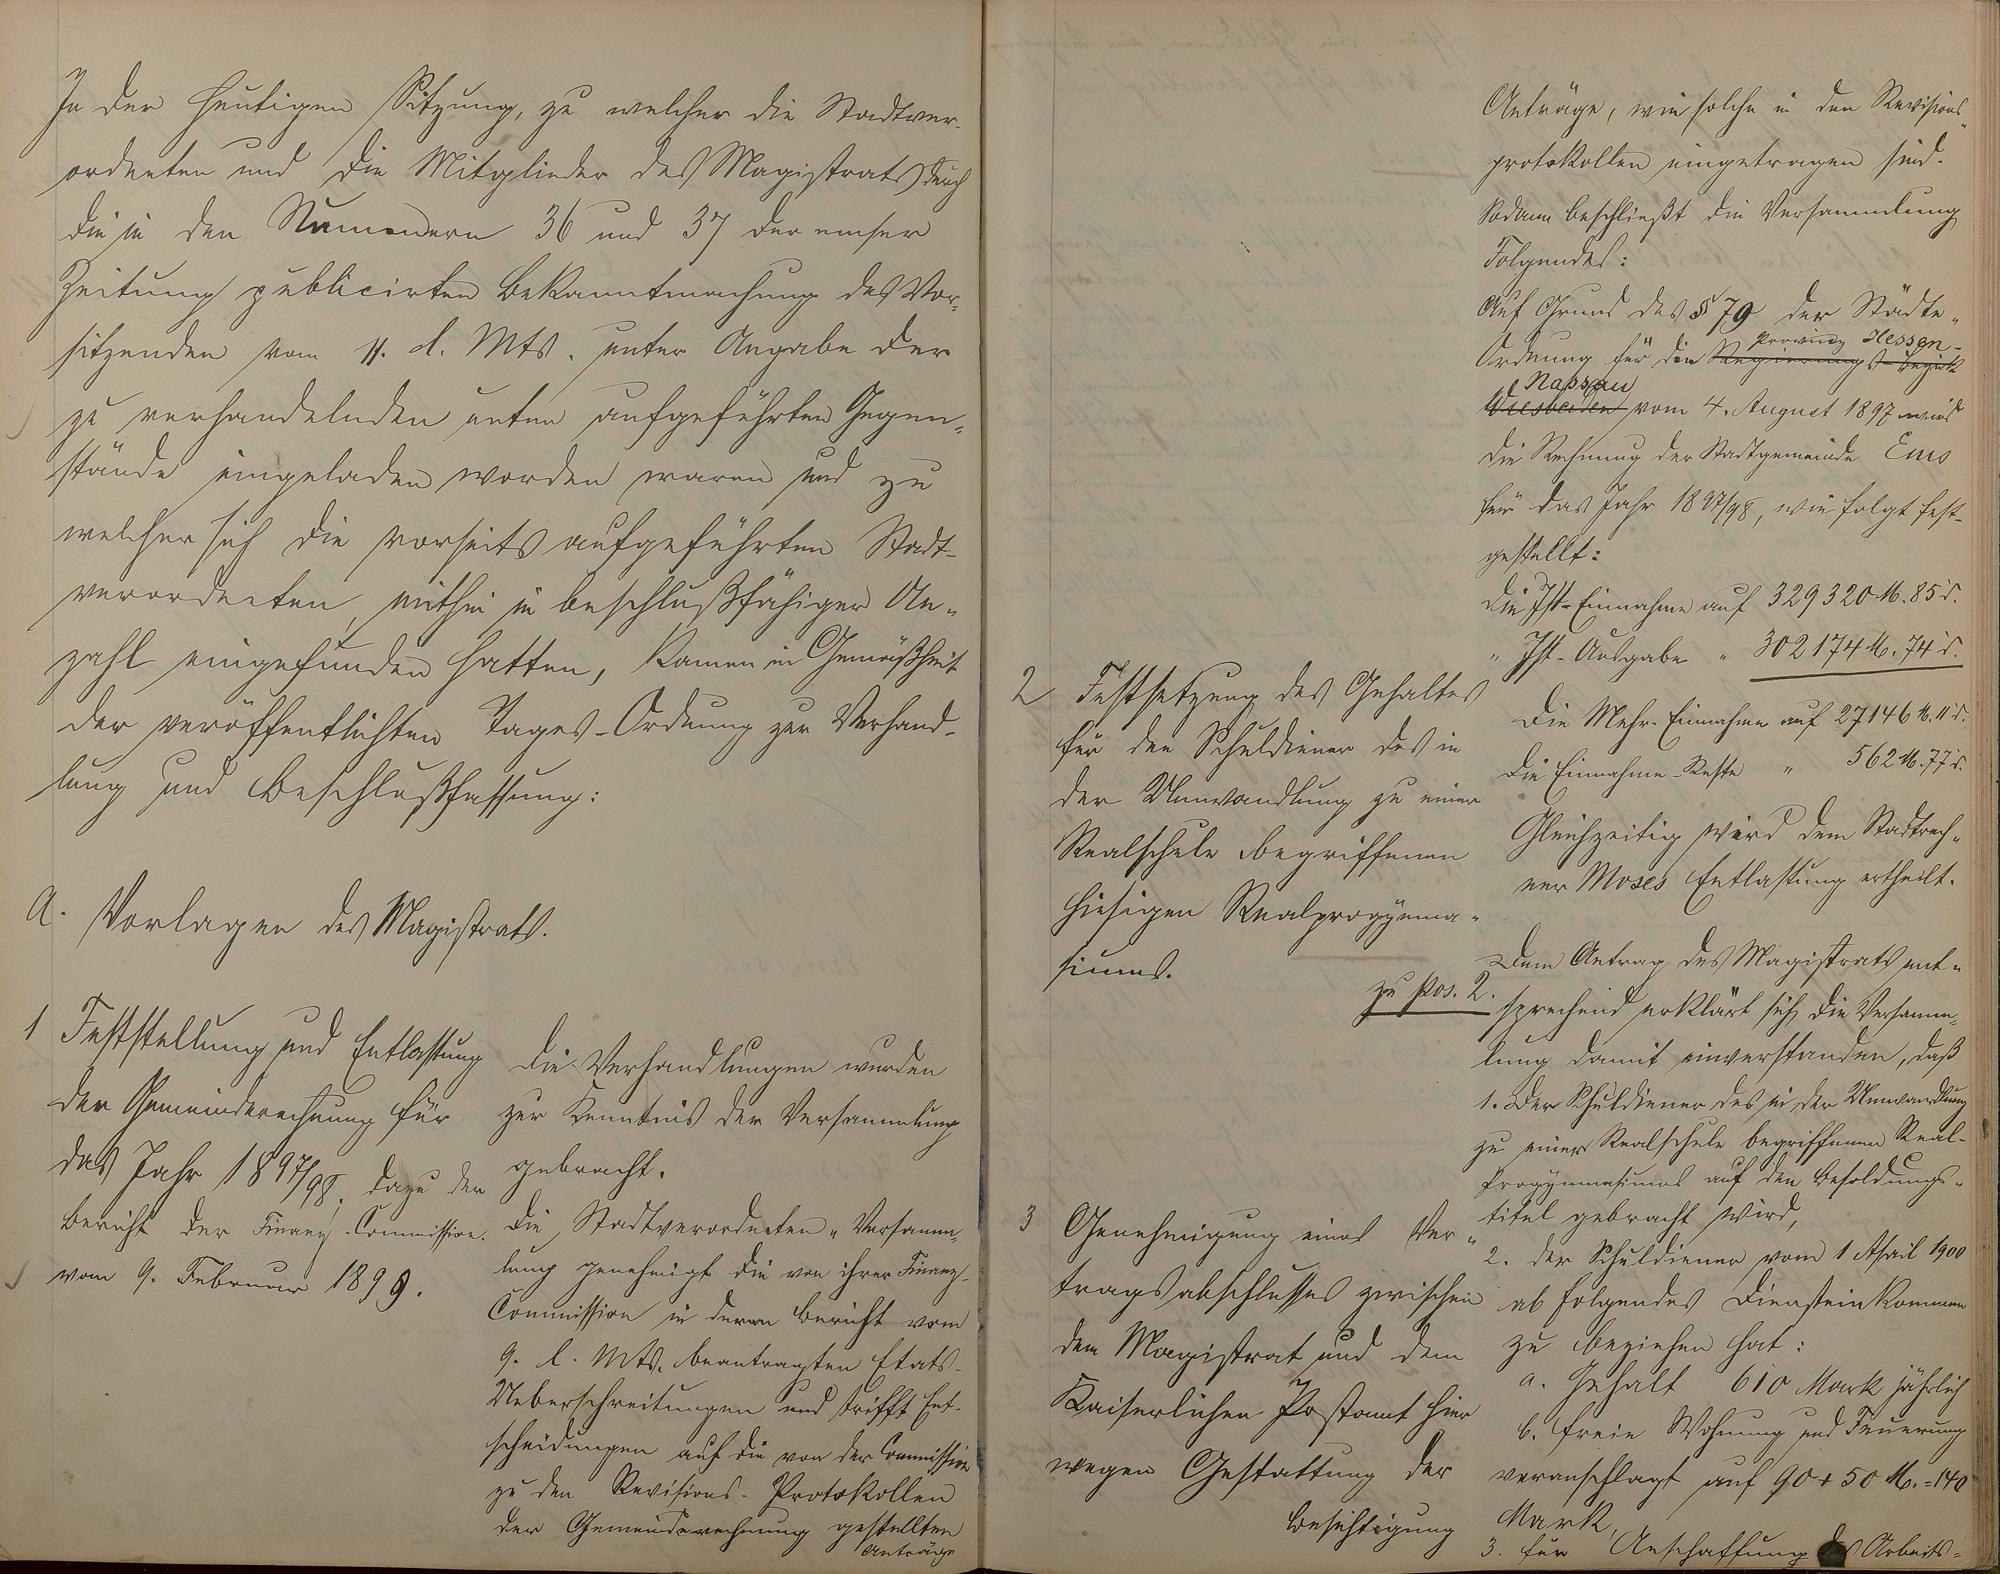 In der heutigen Sitzung, zu welcher die Stadtver-
ordneten und die Mitglieder des Magistrats durch
die in den Nummern 36 und 37 der Emser
Zeitung publicirten Bekanntmachung des Vor-
sitzenden vom 11. d. Mts. unter Angabe der
zu verhandelnden unten aufgeführten Gegen-
stände eingeladen worden waren und zu
welcher sich die vorseits aufgeführten Stadt-
verordneten, mithin in beschlußfähiger An-
zahl eingefunden hatten, kamen in Gemäßheit
der veröffentlichten Tages-Ordnung zur Verhand-
lung und Beschlußfassung:
A. Vorlagen des Magistrats.
1 Feststellung und Entlastung
der Gemeinderechnung für
das Jahr 1897/98, dazu der
Bericht der Finanz-Commission
vom 9. Februar 1899.
Die Verhandlungen wurden
zur Kenntnis der Versammlung
gebracht.
Die Stadtverordneten-Versamm-
lung genehmigt die von ihrer Finanz-
Commission in deren Bericht vom
9. l. Mts. beantragten Etats-
Ueberschreitungen und trifft Ent-
scheidungen auf die von der Commission
zu den Revisions-Protokollen
der Gemeinderechnung gestellten
Anträge
Anträge, wie solche in den Revisions-
protokollen eingetragen sind.
Sodann beschließt die Versammlung
Folgendes:
Auf Grund des § 79 der Städte-
Ordnung für die Regierungs-Bezirk Provinz Hessen-
Wiesbaden Nassau vom 4. August 1897 wird
die Rechnung der Stadtgemeinde Ems
für das Jahr 1897/98, wie folgt fest-
gestellt:
Die Ist-Einnahme auf 329320 M. 85 d.
" Ist-Ausgabe " 302174 M. 74 d.
Die Mehr-Einnahme auf 27146 M. 11 d.
Die Einnahme-Reste " 562 M. 77 d.
Gleichzeitig wird dem Stadtrech-
ner Moses Entlastung ertheilt.
2 Festsetzung des Gehaltes
für den Schuldiener des in
der Umwandlung zu einer
Realschule begriffenen
hiesigen Realprogymna-
siums.
zu Pos. 2.
Dem Antrag des Magistrats ent-
sprechend erklärt sich die Versamm-
lung damit einverstanden, daß
1. Der Schuldiener des in der Umwandlung
zu einer Realschule begriffenen Real-
Progymnasiums auf den Besoldungs-
titel gebracht wird,
2. der Schuldiener vom 1 April 1900
ab folgendes Diensteinkommen
zu beziehen hat:
a. Gehalt 610 Mark jährlich
b. freie Wohnung und Feuerung
veranschlagt auf 90 + 50 M. = 140
Mark,
3. für Anschaffung des Arbeits-
3 Genehmigung eines Ver-
tragsabschlusses zwischen
dem Magistrat und dem
Kaiserlichen Postamt hier
wegen Gestattung der
Besichtigung